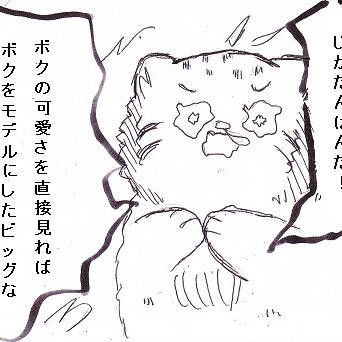 じかだんぱんだ！
ボクの可愛さを直接見れば
ボクをモデルにしたビッグな